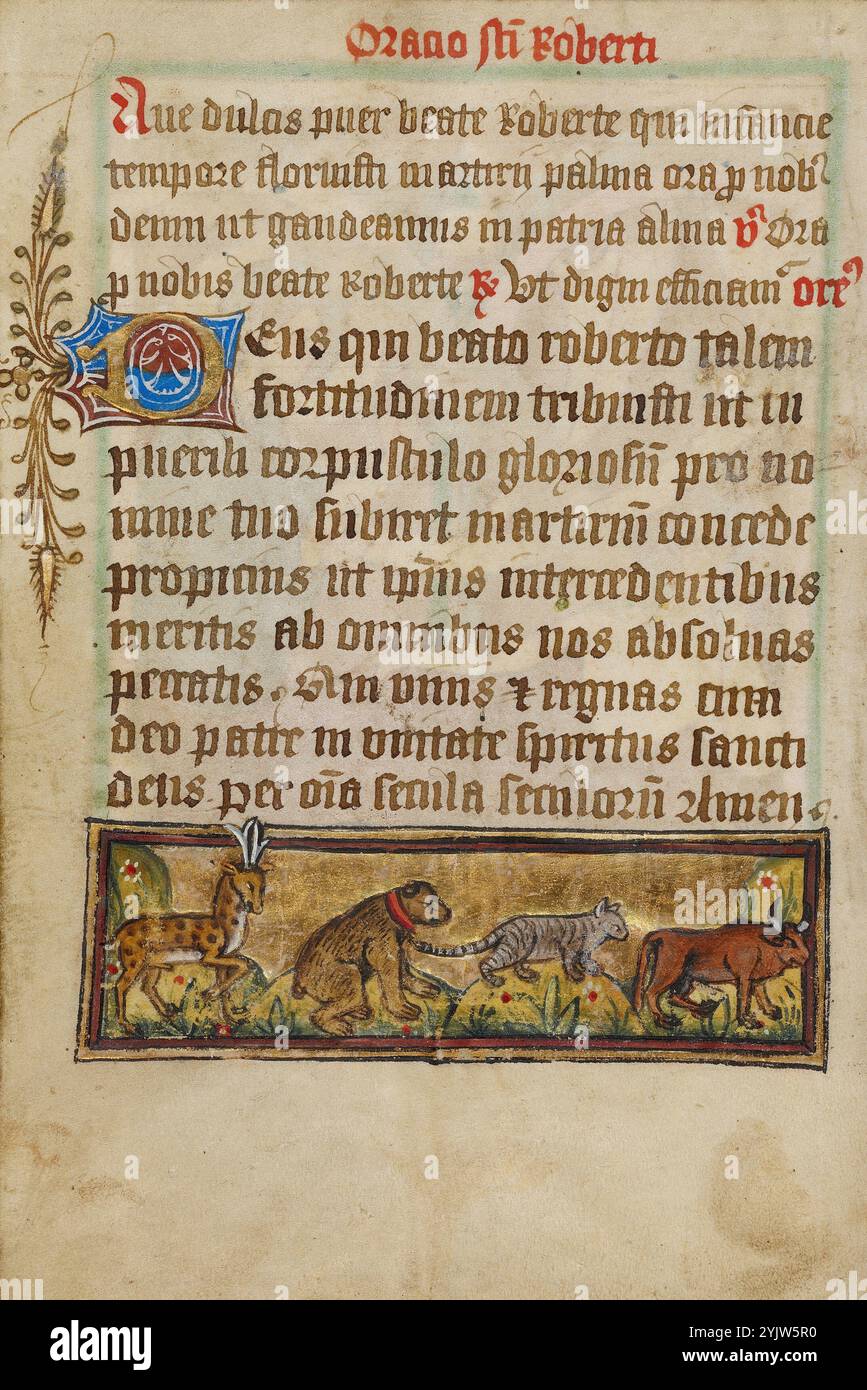 Oracio sti Roberti
Aue dulcis puer beate Roberte qui infancie
tempore floruisti martirij palma ora p nob
deum ut gaudeamus in patria alma v Ora
p nobis beate Roberte R Vt digni efficiam ore
Deus qui beato roberto talem
fortitudinem tribuisti ut in
puerili corpusculo gloriosū pro no
mine tuo subiret martiriū concede
propicius ut ip̄ius intercedentibus
meritis ab omnibus nos absoluas
peccatis. Qui viuis ⁊ regnas cum
deo patre in vnitate spiritus sancti
deus per oīa secula seculorū Amen.
alamy
Image ID: 2YJW5R0
www.alamy.com